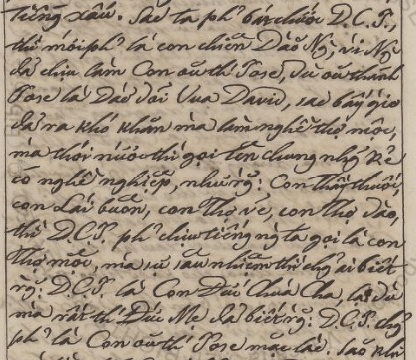 tiếng xấu. Sao ta phꝰ bắt chước D.C.J.,
thì mới phꝰ là con chiên Đảo Ng̃, vì Ng̃
đã chịu làm Con où thí Jose, dù où thánh
Jose là Dào dõi Vua David, sao bây giờ
đã ra khó khăn mà làm nghề thợ mộc,
mà thói nước thì gọi tên chung nhg̃ kẻ
có nghề nghiệp, như rg̃: Con thầy thuốc,
con Lái buôn, con Thợ vẽ, con Thợ đào,
thì D.C.J. phꝰ chịu tiếng ng̃ ta gọi là con
Thợ mộc, mà sự sâu nhiệm thì chg̃ ai biết
rg̃: D.C.J. là Con Đức Chúa Cha, là dù
mà rất thí Đức Mẹ đã biết rg̃: D.C.J. chg̃
phꝰ là Con où thí Jose mặc lào. Sao khi